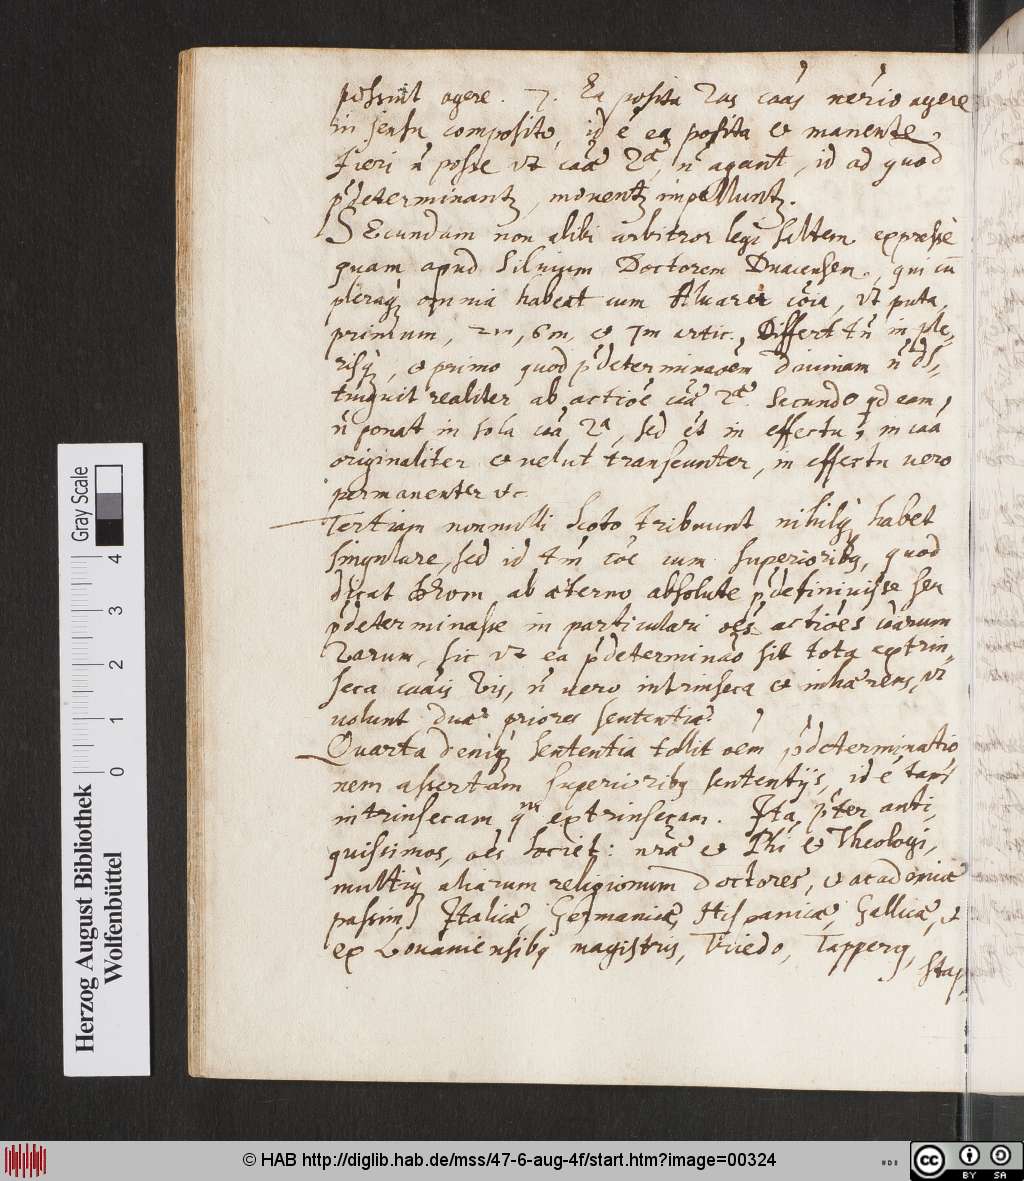 possint agere. 7. Ea posita 2as cãas nẽrio agere
in sensu composito, id ẽ ea posita et manente
fieri ñ posse vt cãae 2ae, ñ agant, id ad quod
p̃determinantʒ, moventʒ impelluntʒ.
Secundam non alibi arbitror legi saltem expressè
quam apud Siluium Doctorem Duacensem, qui cũ
pleraqʒ omnia habeat cum Aluarez cõia, vt puta
primum, 2m, 6m, et 7m artic., Differt tñ in ple-
risqʒ, et primo quod p̃determinaõem diuinam ñ dis-
tinguit realiter ab actiõe cãae 2ae. Secundo qd eam,
ñ ponat in sola cãa 2a, sed et in effectu, in cãa
originaliter et uelut transeunter, in effectu uero
permanenter &c
Tertiam nonnulli Scoto tribuunt nihilqʒ habet
singulare, sed id tm̃ cõe cum superioribʒ, quod
dicat Deum ab aeterno absolute p̃definiuisse seu
p̃determinasse in particulari oẽs actiões cãarum
2arum, sic vt ea p̃determinaõ sit tota extrin-
seca cãis 2is, ñ uero intrinseca et inhaerens, vt
uolunt duae priores sententiae.
Quarta deniqʒ sententia tollit oẽm p̃determinatio
nem assertam superioribʒ sententijs, id ẽ tam
intrinsecam qm extrinsecam. Ita, p̃ter anti-
quissimos, oẽs Societ: nr̃ae et Phi et Theologi,
multiqʒ aliarum religionum Doctores, et academiae
passim Italicae, Germanicae, Hispanicae, Gallicae, et
ex Louaniensibʒ magistris, Driedo, Tapperʒ,
Stap-
Herzog August Bibliothek
Wolfenbüttel
0 1 2 3 4
Gray Scale
© HAB http://diglib.hab.de/mss/47-6-aug-4f/start.htm?image=00324
cc BY SA